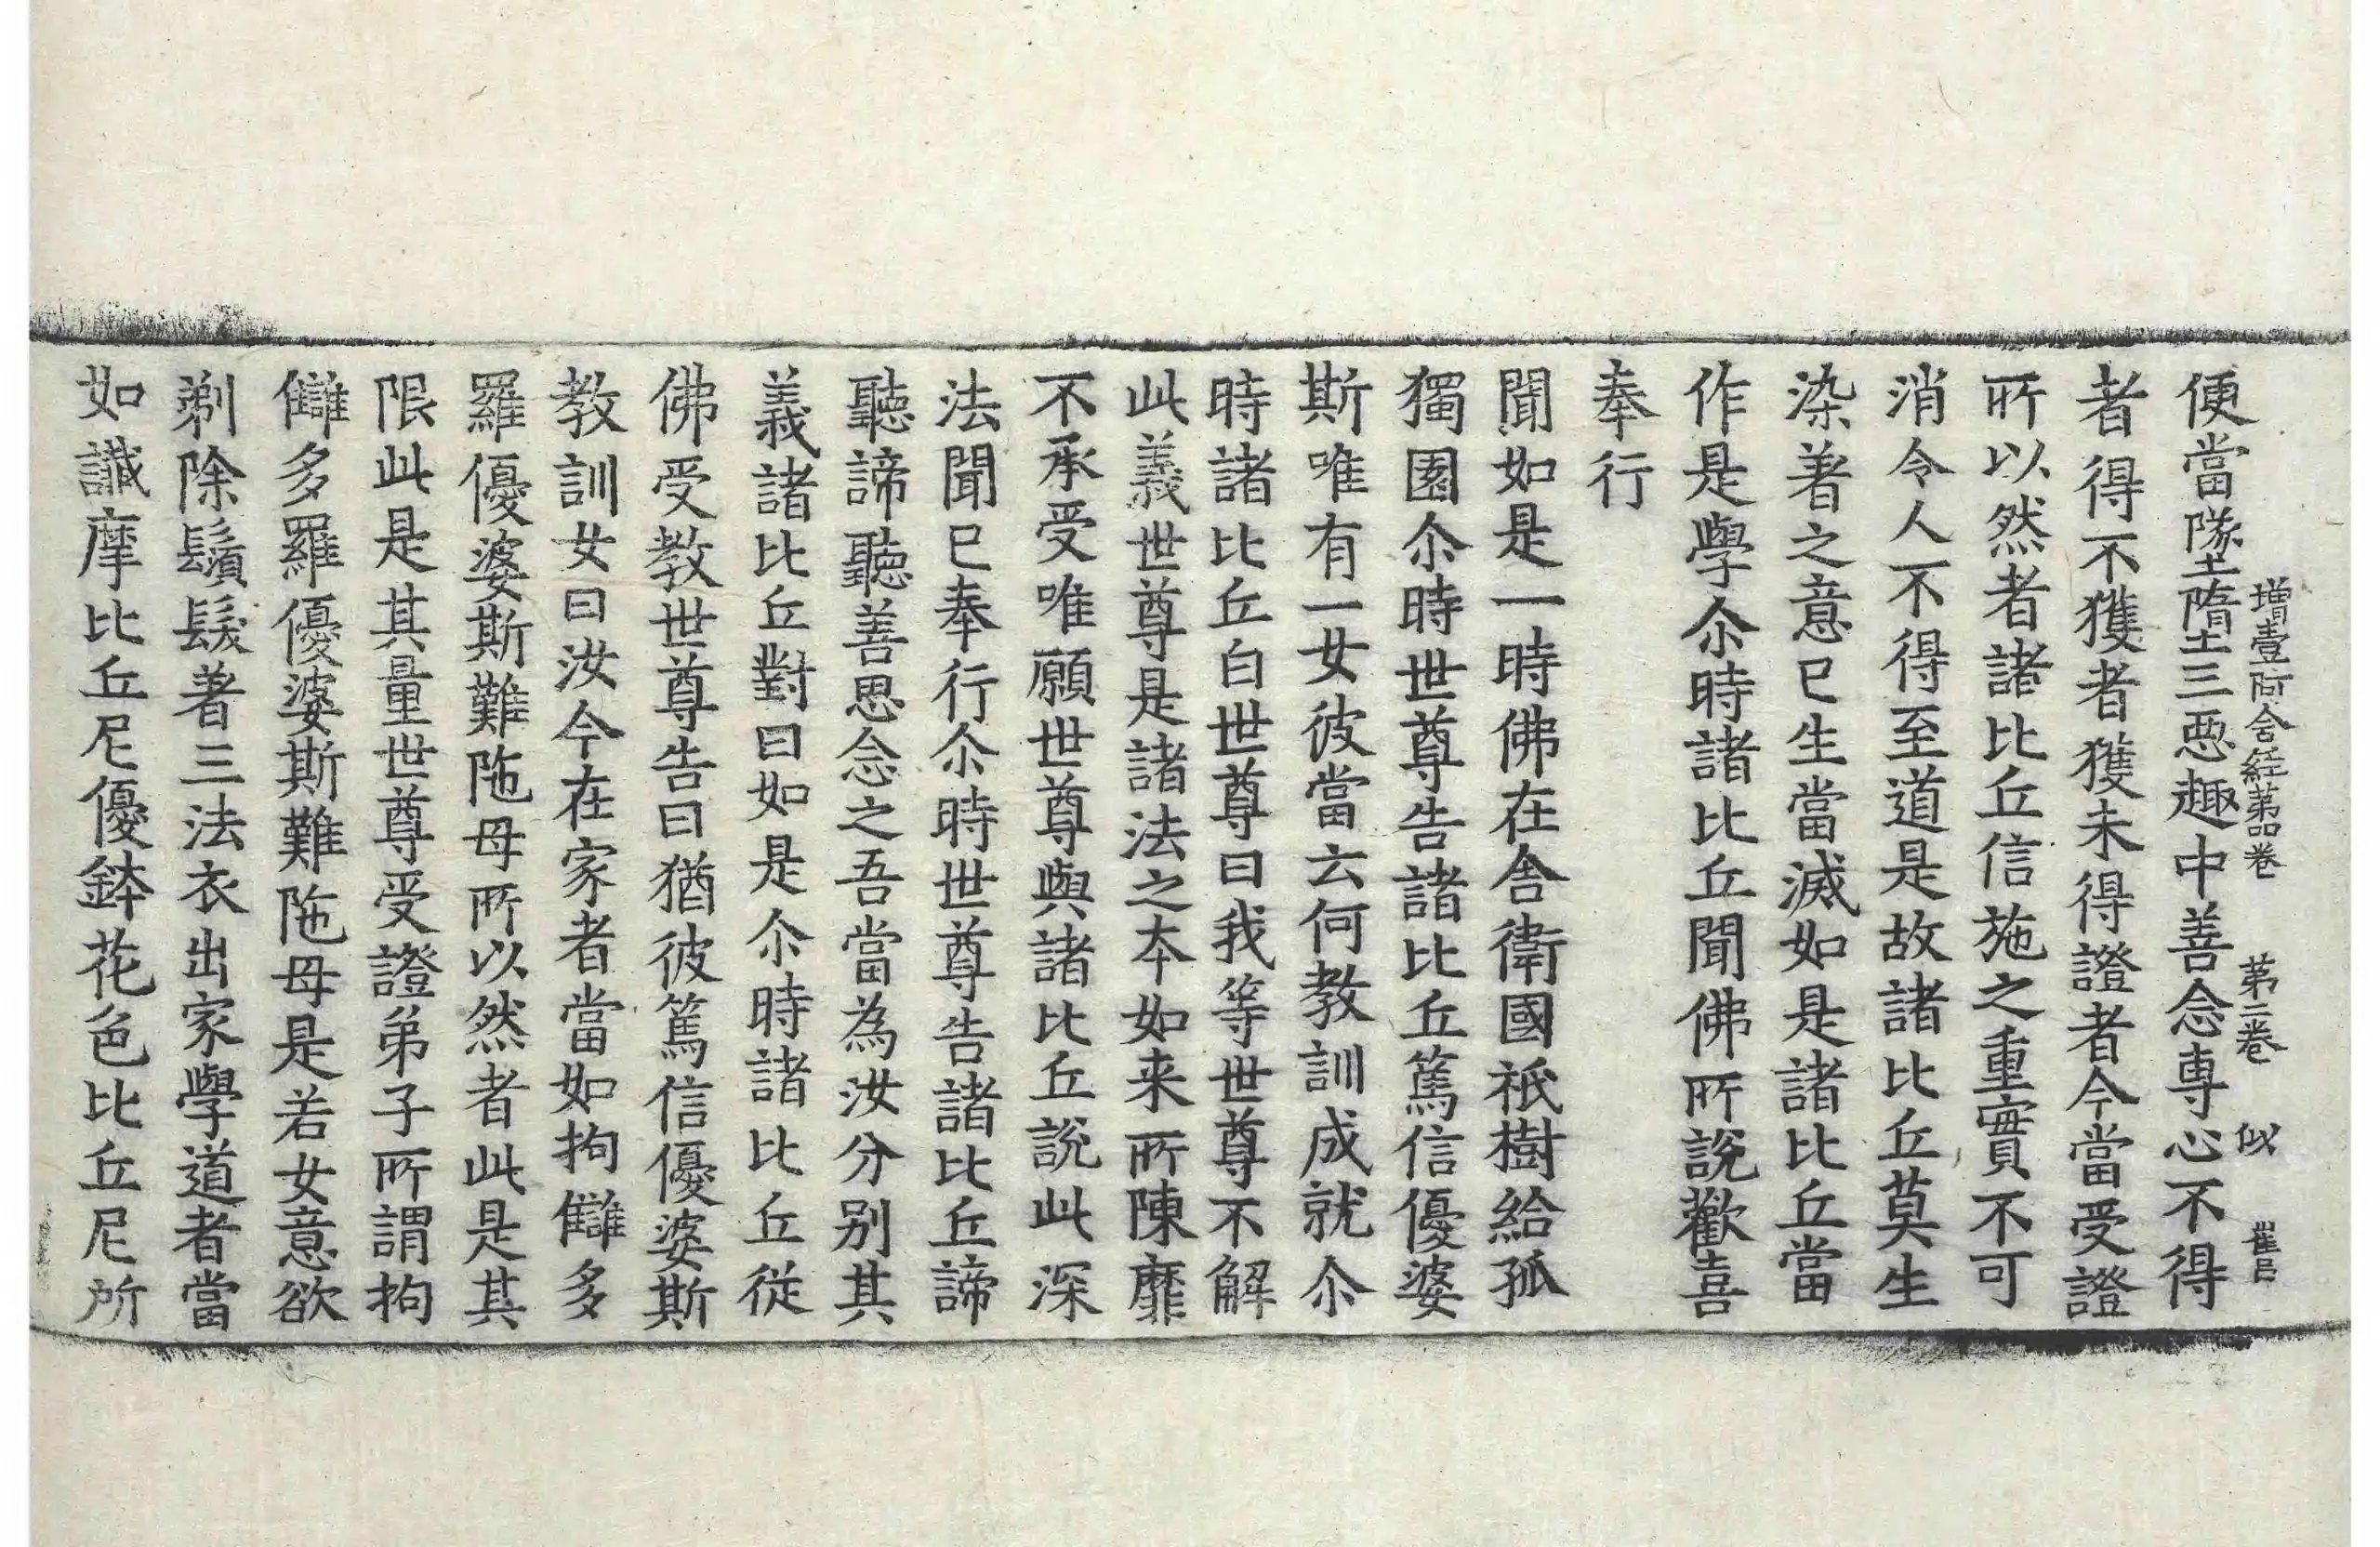 增壹阿含經第四卷 第二卷 似 崔呂
便當墜墮三惡趣中善念專心不得
者得不獲者獲未得證者今當受證
所以然者諸比丘信施之重實不可
消令人不得至道是故諸比丘莫生
染著之意已生當滅如是諸比丘當
作是學尒時諸比丘聞佛所說歡喜
奉行
聞如是一時佛在舍衛國祇樹給孤
獨園尒時世尊告諸比丘篤信優婆
斯唯有一女彼當云何教訓成就尒
時諸比丘白世尊曰我等世尊不解
此義世尊是諸法之本如来所陳靡
不承受唯願世尊與諸比丘說此深
法聞已奉行尒時世尊告諸比丘諦
聽諦聽善思念之吾當為汝分別其
義諸比丘對曰如是尒時諸比丘從
佛受教世尊告曰猶彼篤信優婆斯
教訓女曰汝今在家者當如拘讎多
羅優婆斯難陁母所以然者此是其
限此是其量世尊受證弟子所謂拘
讎多羅優婆斯難陁母是若女意欲
剃除鬚髮著三法衣出家學道者當
如讖摩比丘尼優鉢花色比丘尼所